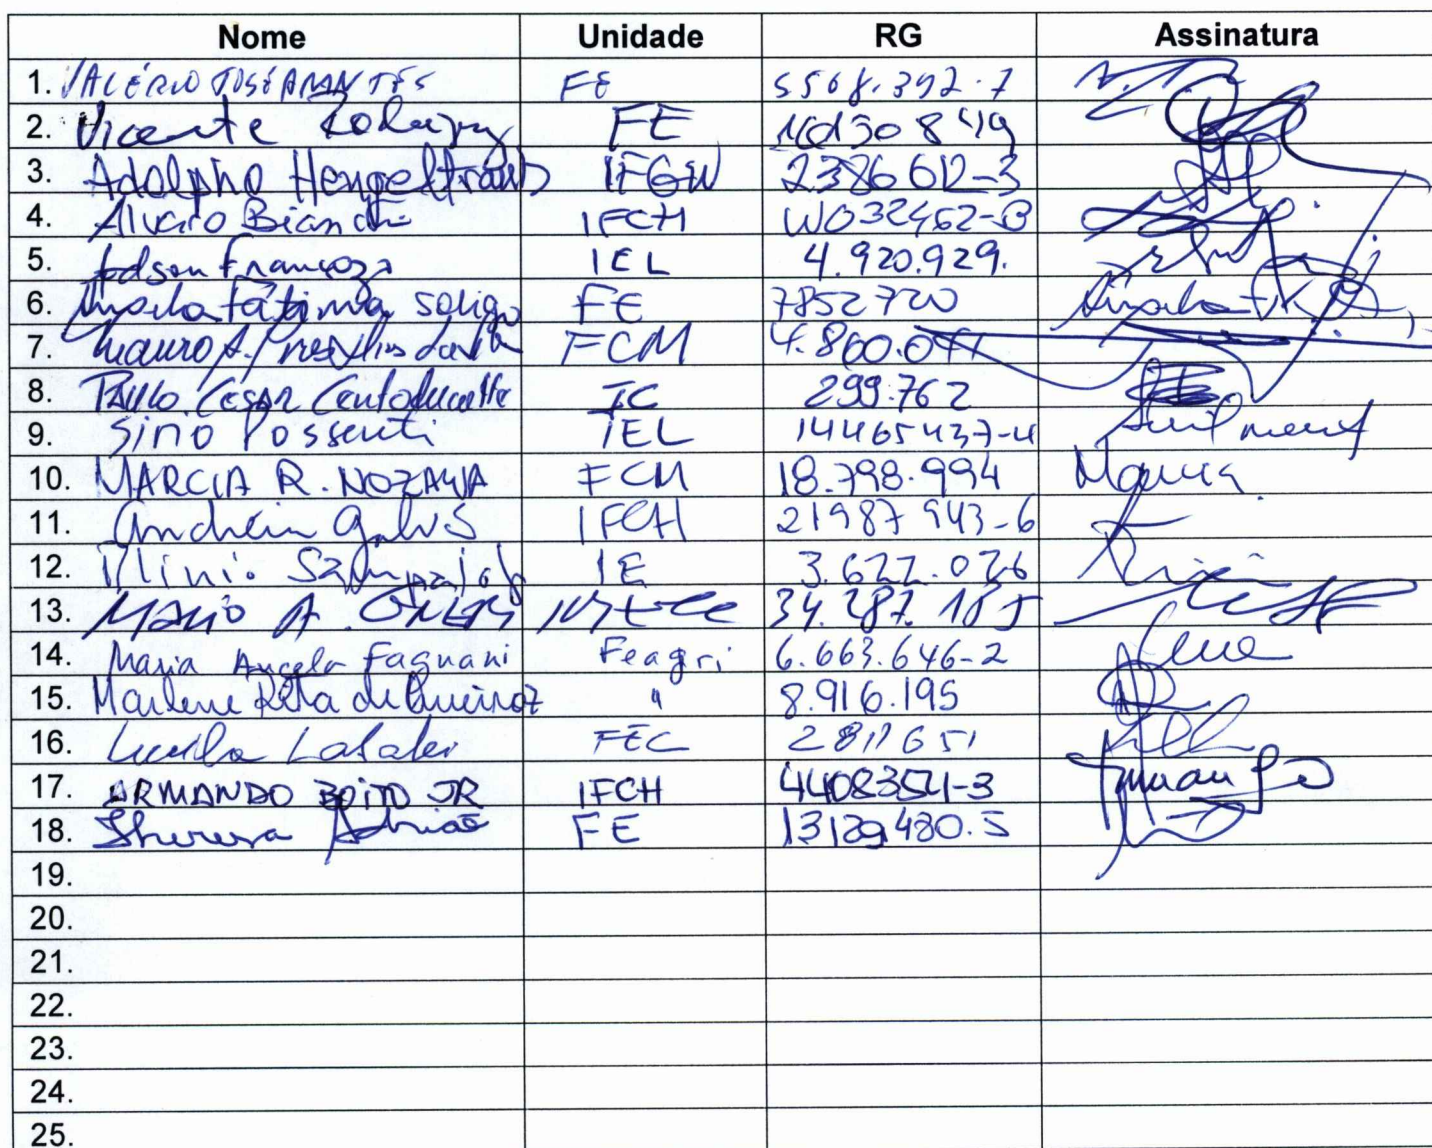 Nome Unidade RG Assinatura
1. VALÉRIO JOSÉ ARANTES FE 5568.392-7
2. Vicente Rodriguez FE
3. Adolpho Hengeltraub IFGW 2386612-3
4. Alvaro Bianchi IFCH W032462-B
5. Edson Françozo IEL 4.920.929.
6. Angela Fátima Soligo FE 7852720
7. Mauro A. FCM
8. PAULO CESAR Centoducatte IC 299.762
9. Sírio Possenti IEL 14465437-4
10. MARCIA R. NOZAWA FCM 18.798.994 Marcia
11. Andréia Galvão IFCH 21987943-6
12. Plínio Sampaio Jr IE 3.627.026
13. MARIO A. 34.287.185
14. Maria Angela Fagnani Feagri 6.663.646-2
15. Marlene Rita de Queiroz " 8.916.195
16. FEC 2811651
17. ARMANDO BOITO JR IFCH 4408354-3
18. Theresa Adrião FE 13129480.5
19.
20.
21.
22.
23.
24.
25.